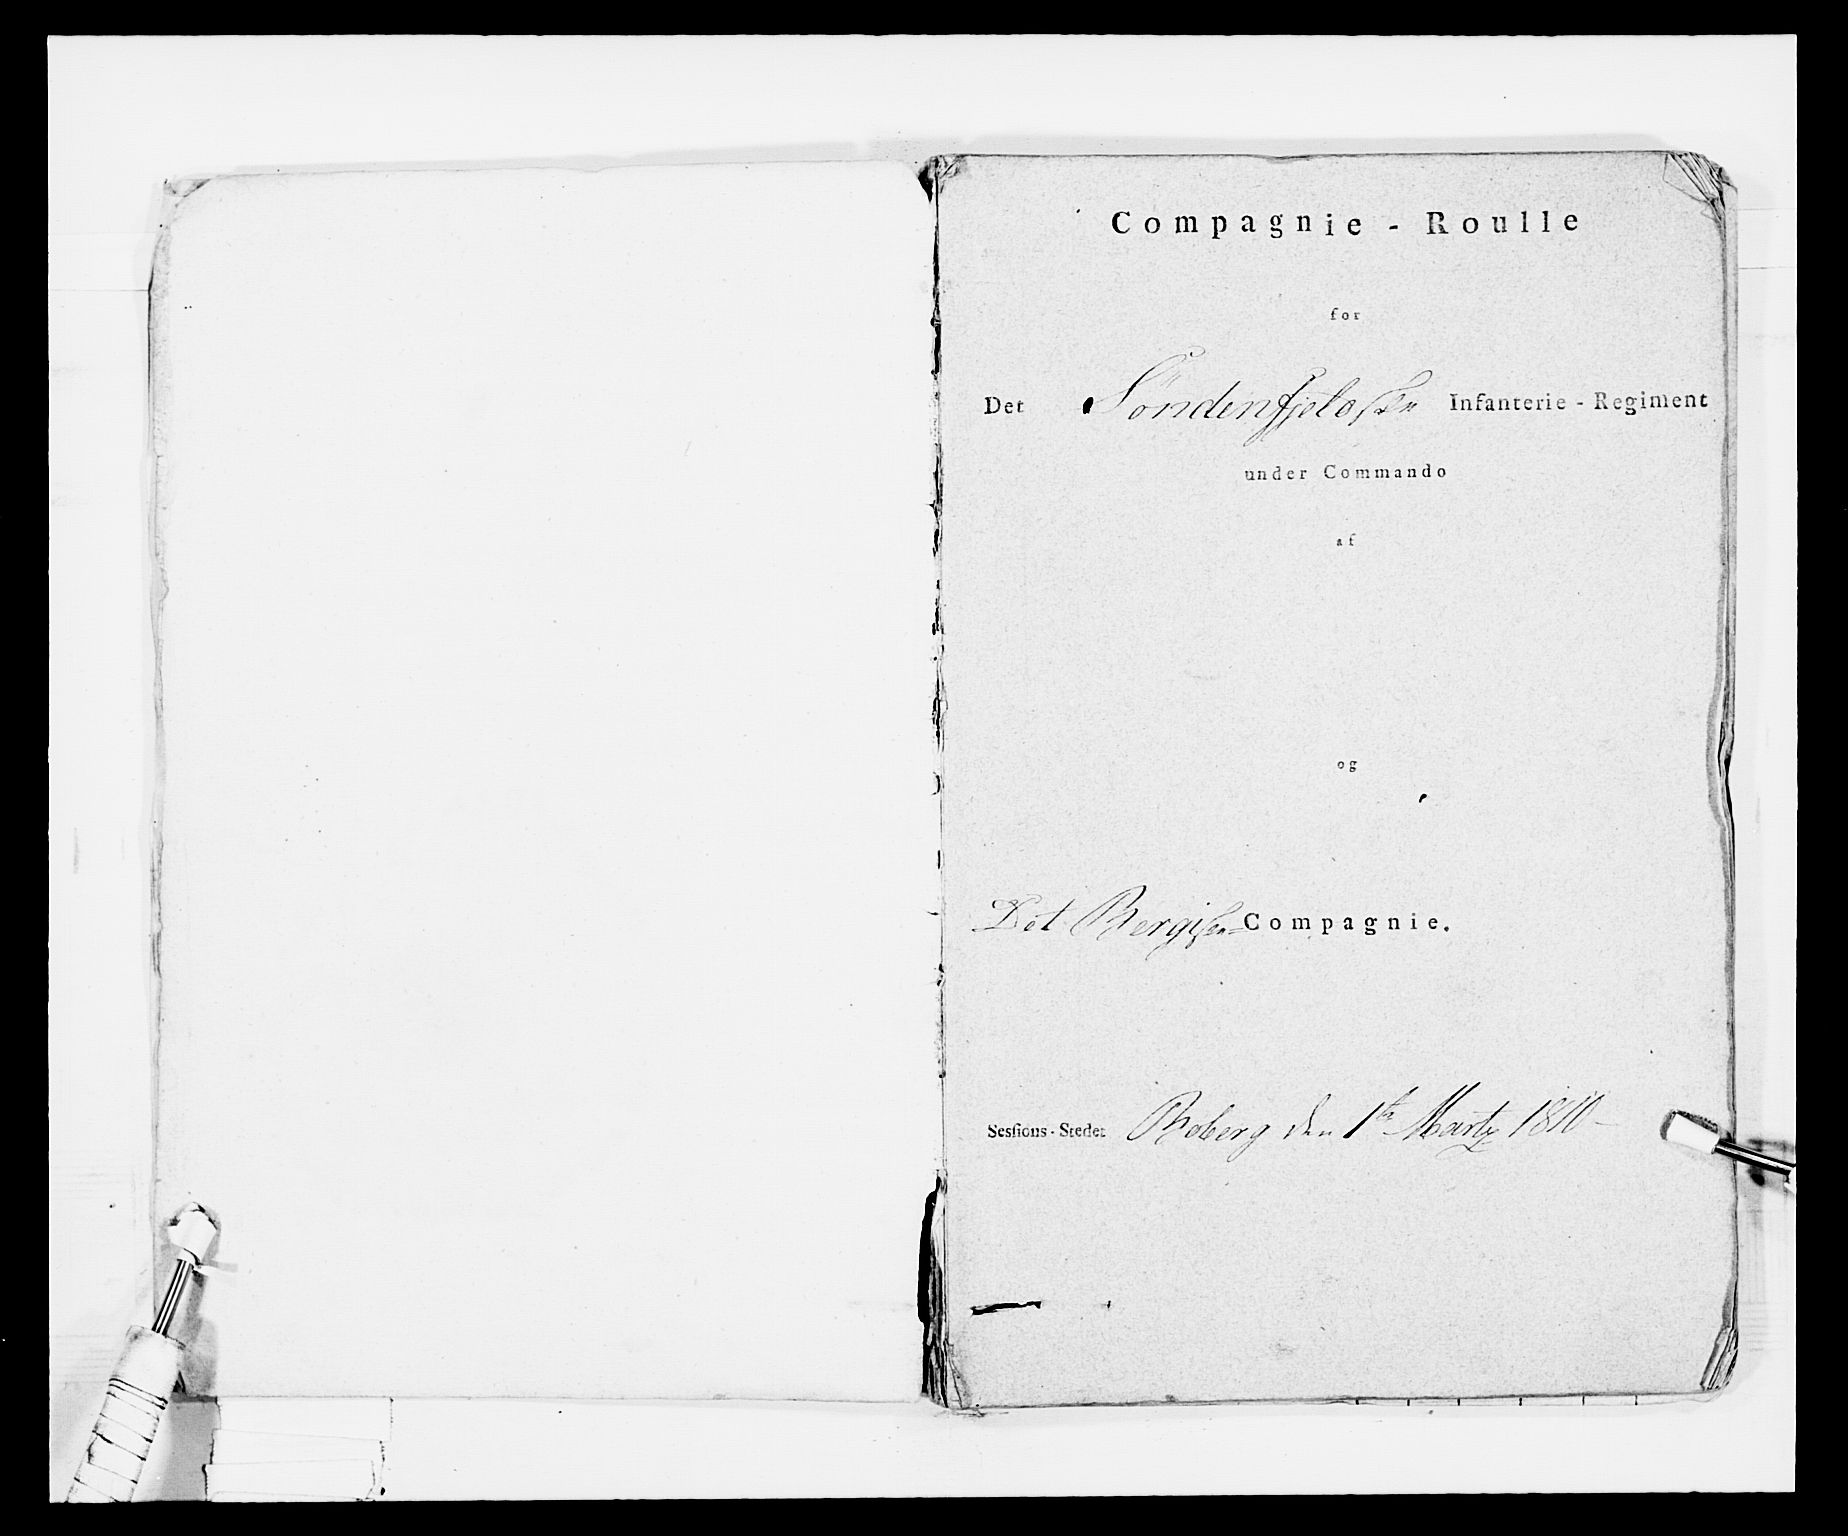 Compagnie - Roulle
for
Det Söndenfjeldske Infanterie - Regiment
under Commando
af
og
Det Bergiske Compagnie.
Sessions-Stedet Boberg den 1te Martz 1810